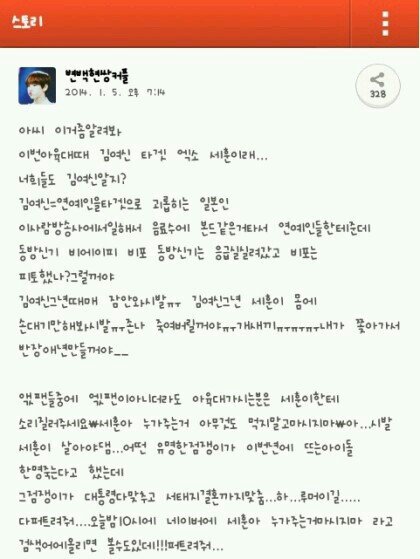 스토리
변백현쌍커플
2014. 1. 5. 오후 7:14
328
아씨 이거좀알려봐
이번아육대때 김여신 타겟 엑소 세훈이래...
너희들도 김여신알지?
김여신=연예인을타겟으로 괴롭히는 일본인
이사람방송사에서일해서 음료수에 본드같은거타서 연예인들한테준데
동방신기 비에이피 비포 동방신기는 응급실실려갔고 비포는
피토했나?그럴꺼야
김여신그년때매 잠안와시발ㅠㅜ 김여신그년 세훈이 몸에
손대기만해봐시발ㅠㅜ존나 죽여버릴꺼야ㅠㅜ개새끼ㅠㅜㅠㅜㅠㅜ내가 쫓아가서
반장애년만들꺼야__
앴팬들중에 엤팬이아니더라도 아육대가시는분은 세훈이한테
소리질러주세요₩세훈아 누가주는거 아무것도 먹지말고마시지마₩아...시발
세훈이 살아야댐...어떤 유명한점쟁이가 이번년에 뜨는아이돌
한명죽는다고 했는데
그점쟁이가 대통령다맞추고 서태지결혼까지맞춤...하...루머이길.....
다퍼트려줘....오늘밤10시에 네이버에 세훈아 누가주는거마시지마 라고
검색어에올리면 볼수도있데!!!퍼트려줘...